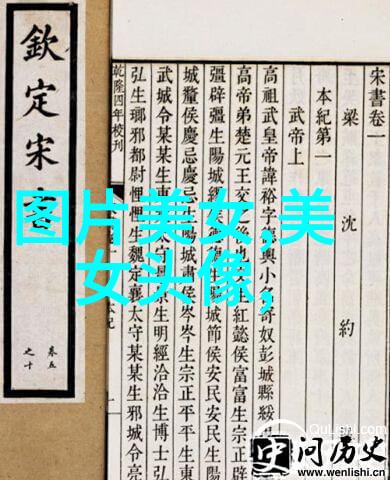 欽定宋
卷五
之十
宋書卷一
梁 沈 約
本紀第一
武帝上
高祖武皇帝諱裕字德輿小名寄奴彭城縣綏
高帝弟楚元王交之後也交生紅懿侯富富生宗正辟
彊辟彊生陽城繆侯德德生陽城節侯安民安民生陽
城釐侯慶忌慶忌生陽城肅侯岑岑生宗正平平生東
武城令某某生東太守景生明經洽洽生博士弘
弘生瑯邪都尉悝悝生魏定襄太守某某生邪城令亮
乾隆四年校刊
图片美女,美
女头像,
QuLishi.com
问历史
www.wenlishi.cn